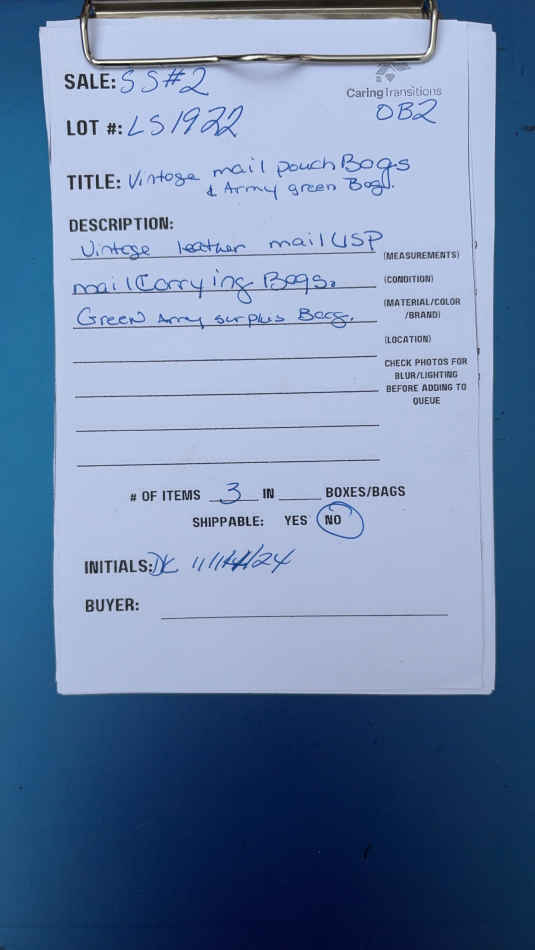 SALE: SS#2
CaringTransitions
OB2
LOT #: LS1922
TITLE: Vintage mail pouch Bags
& Army green Bag.
DESCRIPTION:
Vintage leather mail USP
(MEASUREMENTS)
mail Carrying Bags.
(CONDITION)
Green Army surplus Bag.
(MATERIAL/COLOR
/BRAND)
(LOCATION)
CHECK PHOTOS FOR
BLUR/LIGHTING
BEFORE ADDING TO
QUEUE
# OF ITEMS 3 IN BOXES/BAGS
SHIPPABLE: YES NO
INITIALS: DK
BUYER: